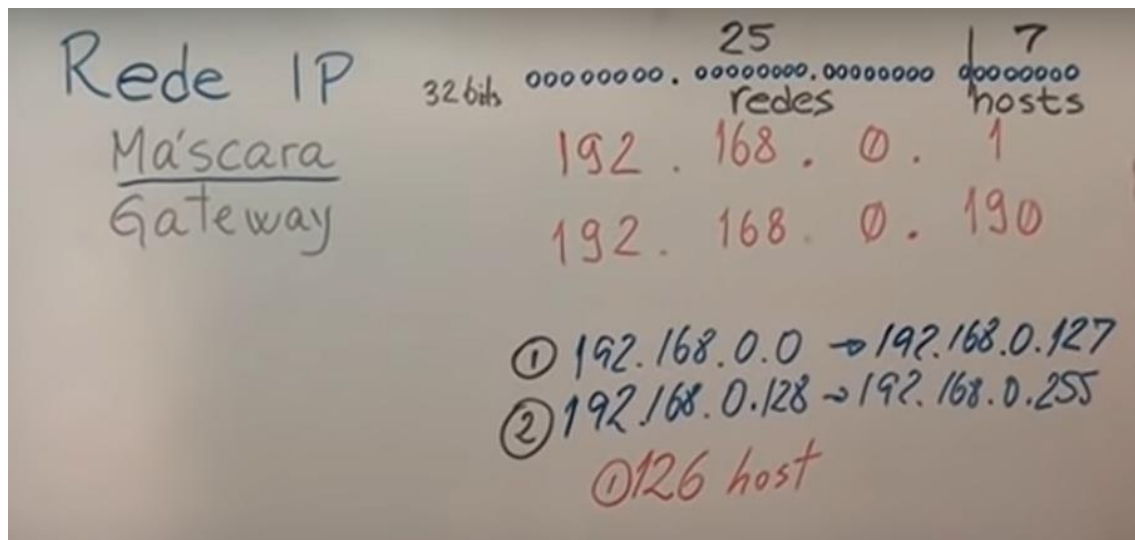 Rede IP
Máscara
Gateway
25 7
32 bits 00000000.00000000.00000000 00000000
redes hosts
192.168.0.1
192.168.0.190
① 192.168.0.0 → 192.168.0.127
② 192.168.0.128 → 192.168.0.255
① 126 host